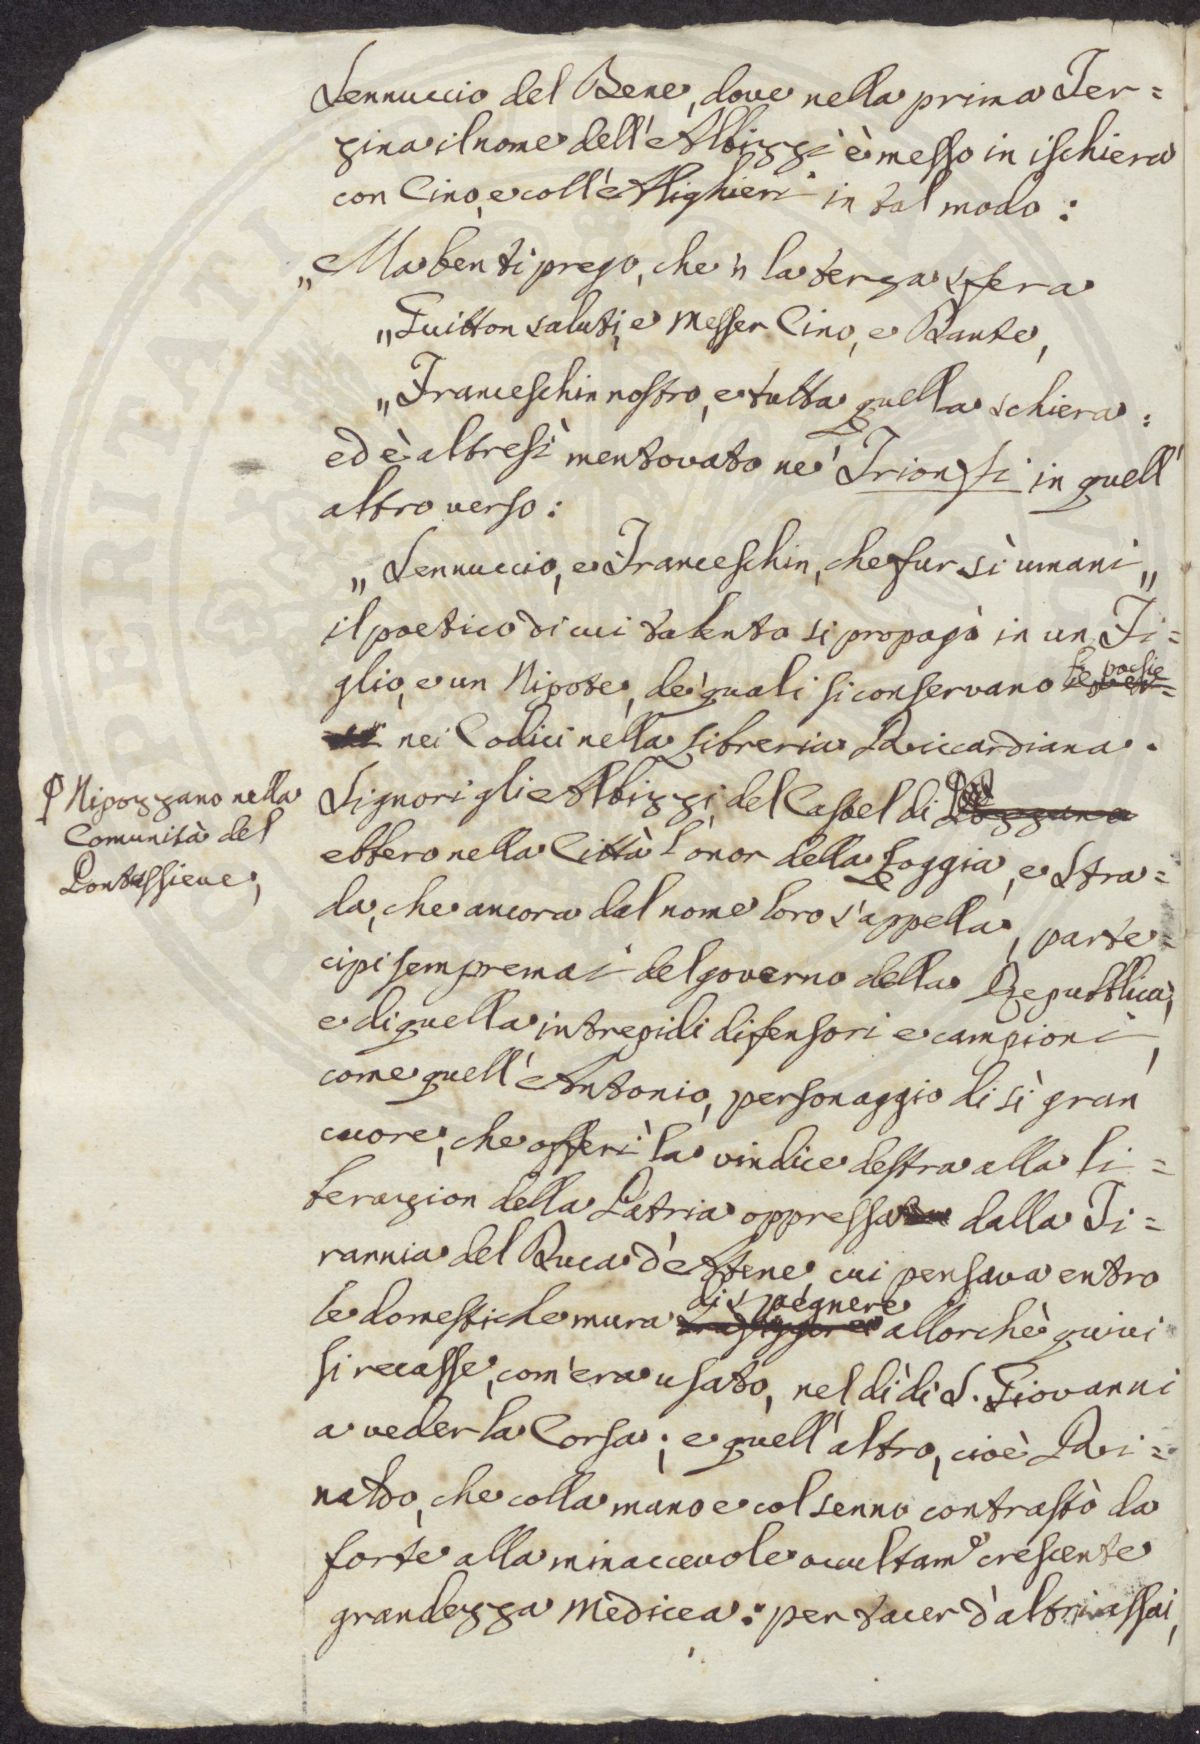 Sennuccio del Bene, dove nella prima Ter=
zina il nome dell'Albizzi è messo in ischiera
con Cino, e coll'Alighieri in tal modo:
„ Ma ben ti prego, che 'n la terza sfera
„ Guitton saluti, e Messer Cino, e Dante,
„ Franceschin nostro, e tutta quella schiera:
ed è altresì mentovato ne' Trionfi in quell'
altro verso:
„ Sennuccio, e Franceschin, che fur sì umani „
il poetico di cui talento si propagò in un Fi=
glio, e un Nipote, de' quali si conservano le poesie
nei Codici nella Libreria Riccardiana.
Signori gli Albizzi del Castel di
Nipozzano nella
Comunità del
Pontassieve,
ebbero nella Città l'onor della Loggia, e Stra=
da, che ancora dal nome loro s'appella, parte=
cipi sempremai del governo della Repubblica,
e di quella intrepidi difensori e campioni,
come quell'Antonio, personaggio di sì gran
cuore, che offerì la vindice destra alla li=
berazion della Patria oppressa dalla Ti=
rannia del Duca d'Atene, cui pensava entro
le domestiche mura di spegnere allorchè quivi
si recasse, com'era usato, nel dì di S. Giovanni
a veder la Corsa; e quell'altro, cioè Ri=
naldo, che colla mano e col senno contrastò da
forte alla minaccevole occultam.e crescente
grandezza Medicea: per tacer d'altri assai,